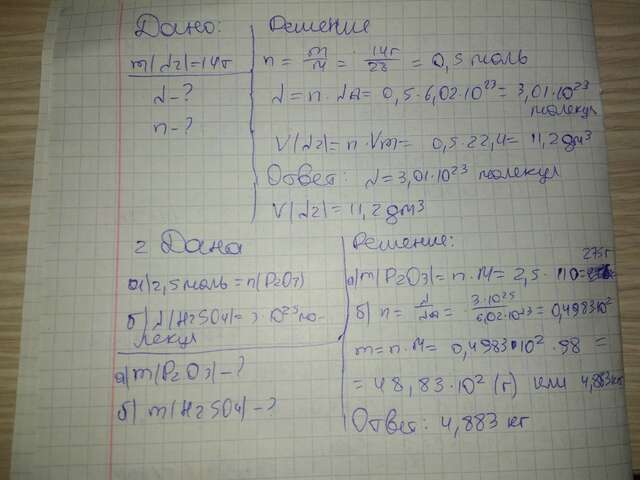 Дано:
m(N2)=14г
N-?
n-?
Решение
n = m/M = 14г/28 = 0,5 моль
N = n · NA = 0,5·6,02·10²³ = 3,01·10²³
молекул
V(N2)= n · Vm= 0,5·22,4= 11,2 дм³
Ответ: N=3,01·10²³ молекул
V(N2)= 11,2 дм³
2 Дана
а) 2,5 моль = n(P2O3)
б) N(H2SO4)= 3 10²⁵ мо-
лекул
а) m(P2O3) - ?
б) m(H2SO4) - ?
Решение:
275г
а) m(P2O3) = n · M = 2,5 · 110=
б) n = N/NA = 3·10²⁵/6,02·10²³ = 0,4983·10²
m= n·M= 0,4983·10² · 98 =
= 48,83·10² (г) или 4,883кг
Ответ: 4,883 кг